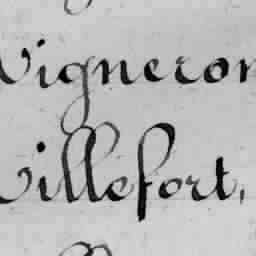 Vigneron
Villefort,